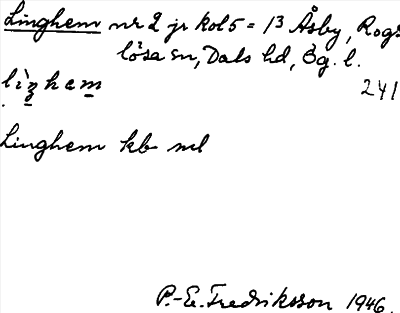 Linghem nr 2 jr kol 5 = 13 Åsby, Rogs
lösa sn, Dals hd, Ög. l.
lìŋhem 241
Linghem kb ml
P.-E. Fredriksson 1946.